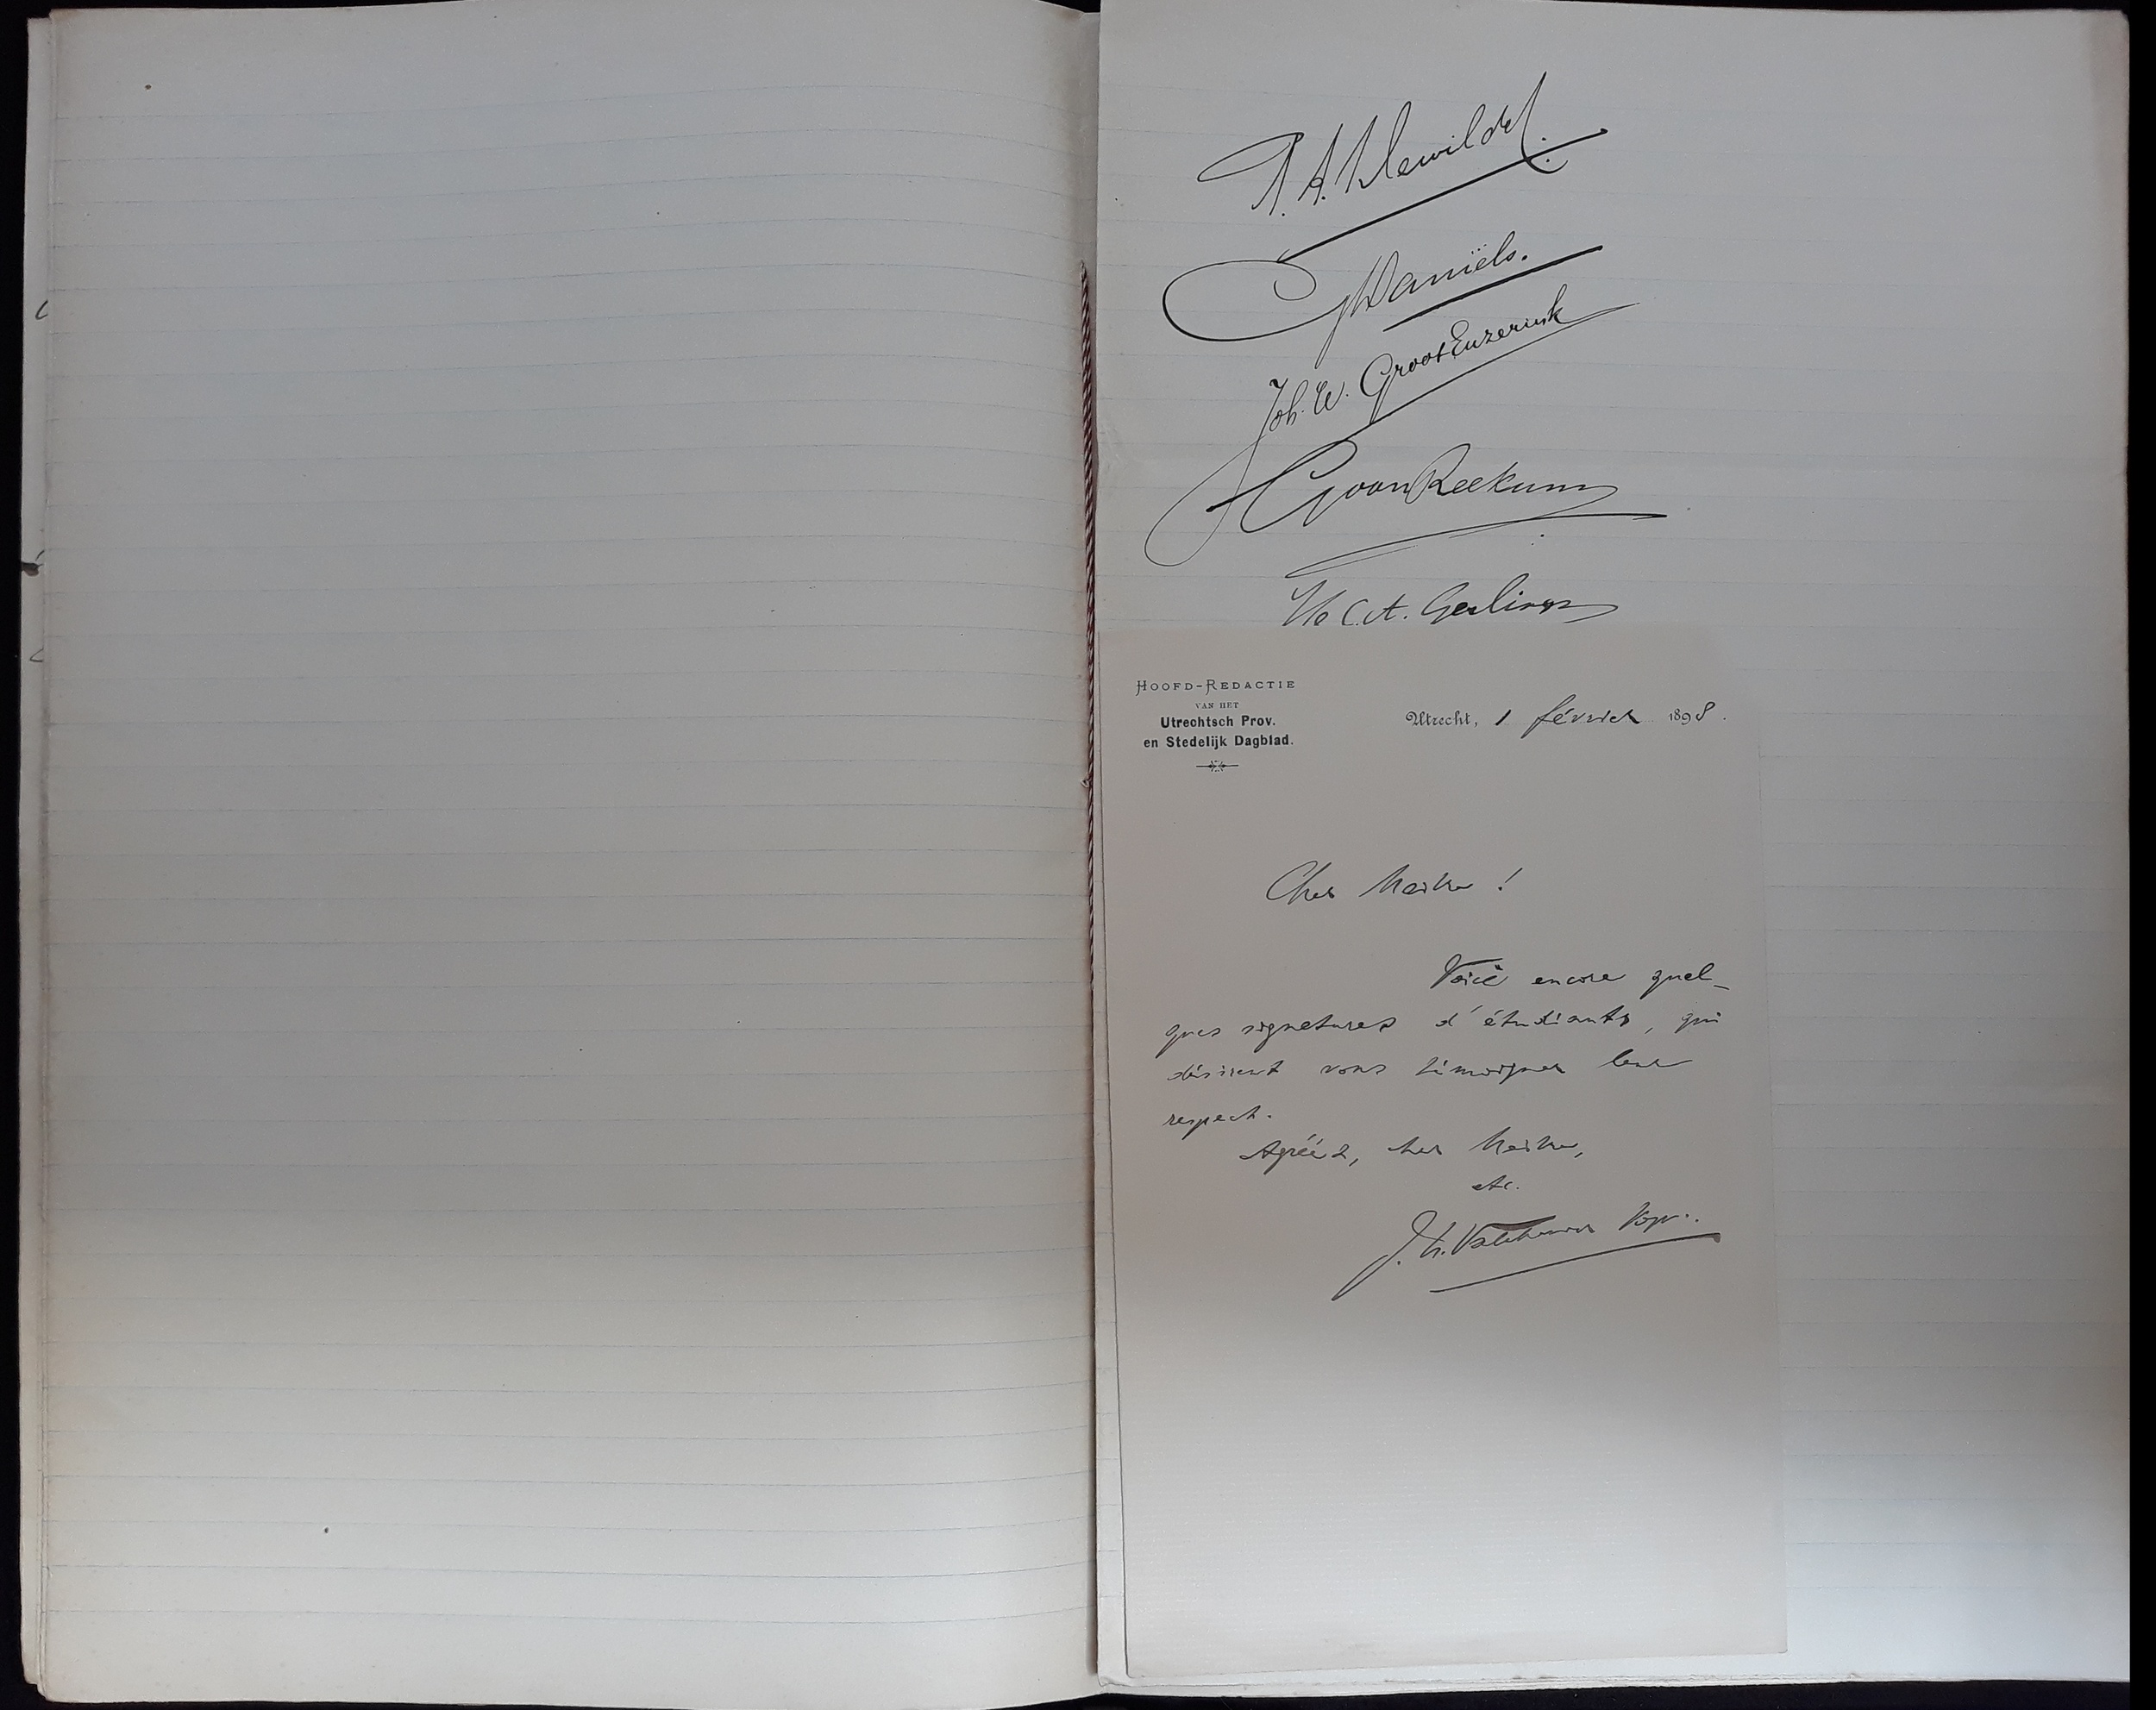 Daniëls.
Joh. W. Groot Enzerink
G van Reekum
C.A. Gerlings
HOOFD-REDACTIE
VAN HET
Utrechtsch Prov.
en Stedelijk Dagblad.
Utrecht, 1 février 1898.
Cher Maître !
Voici encore quel-
ques signatures d'étudiants, qui
désirent vous témoigner leur
respect.
Agréez, cher Maître,
etc.